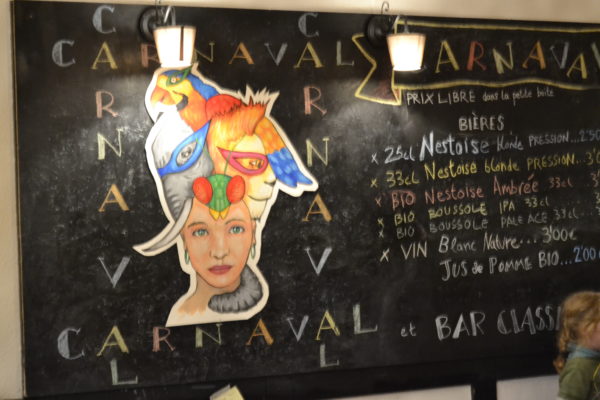 CARNAVAL
CARNAVAL
CARNAVAL
CARNAVAL
CARNAVA
PRIX LIBRE dans la petite boîte
BIÈRES
x 25cl Nestoise blonde PRESSION...2'50
x 33cl Nestoise blonde PRESSION...
x BIO Nestoise Ambrée 33cl
x BIO BOUSSOLE IPA 33cl
x BIO BOUSSOLE PALE ACE 33cl
x VIN Blanc Nature... 3'00€
JUS de POMME BIO...2'00
CARNAVAL et BAR CLASS